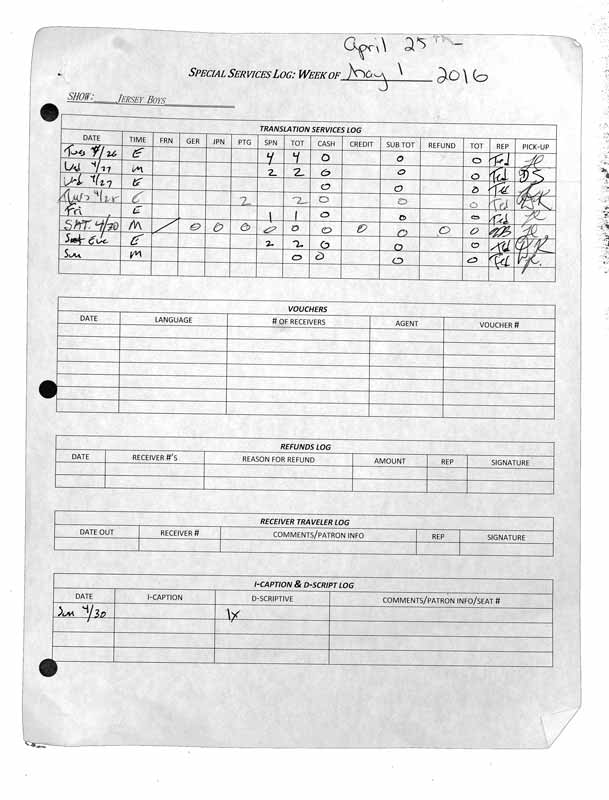 April 25TH
SPECIAL SERVICES LOG: WEEK OF May 1 2016
SHOW: JERSEY BOYS
TRANSLATION SERVICES LOG
DATE TIME FRN GER JPN PTG SPN TOT CASH CREDIT SUB TOT REFUND TOT REP PICK-UP
Tues 4/26 E 4 4 0 0 0 Ted
Wed 4/27 M 2 2 0 0 0 Ted DS
Wed 4/27 E 0 0 0 Ted
Thurs 4/28 E 2 2 0 0 0 Ted
Fri E 1 1 0 0 0 Ted
SAT. 4/30 M / 0 0 0 0 0 0 0 0 0 0
Sat Eve E 2 2 0 0 0 Ted
Sun M 0 0 0 0 Ted
VOUCHERS
DATE LANGUAGE # OF RECEIVERS AGENT VOUCHER #
REFUNDS LOG
DATE RECEIVER #'S REASON FOR REFUND AMOUNT REP SIGNATURE
RECEIVER TRAVELER LOG
DATE OUT RECEIVER # COMMENTS/PATRON INFO REP SIGNATURE
I-CAPTION & D-SCRIPT LOG
DATE I-CAPTION D-SCRIPTIVE COMMENTS/PATRON INFO/SEAT #
Sun 4/30 1x